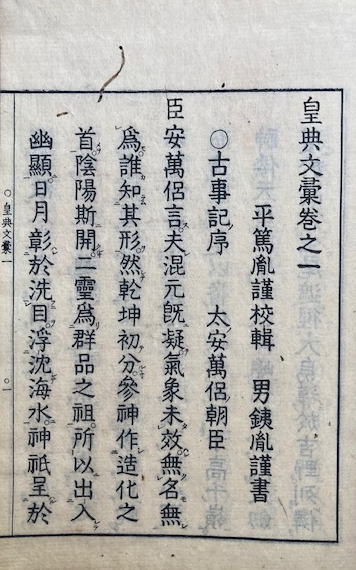 皇典文彙卷之一
平篤胤謹校輯　男銕胤謹書
○古事記序　太安萬侶朝臣
臣安萬侶言夫混元既凝氣象未效無名無
爲誰知其形然乾坤初分參神作造化之
首陰陽斯開二靈爲群品之祖所以出入
幽顯日月彰於洗目浮沈海水神祇呈於
○皇典文彙一
○一